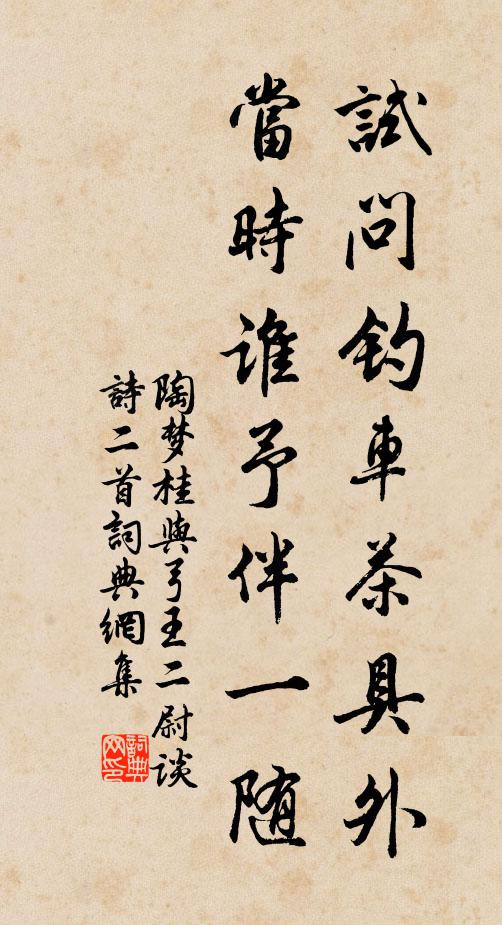 試問釣車茶具外
當時誰予伴一随
陶梦桂與弓王二尉谈
詩二首詞典網集
詞典
网印